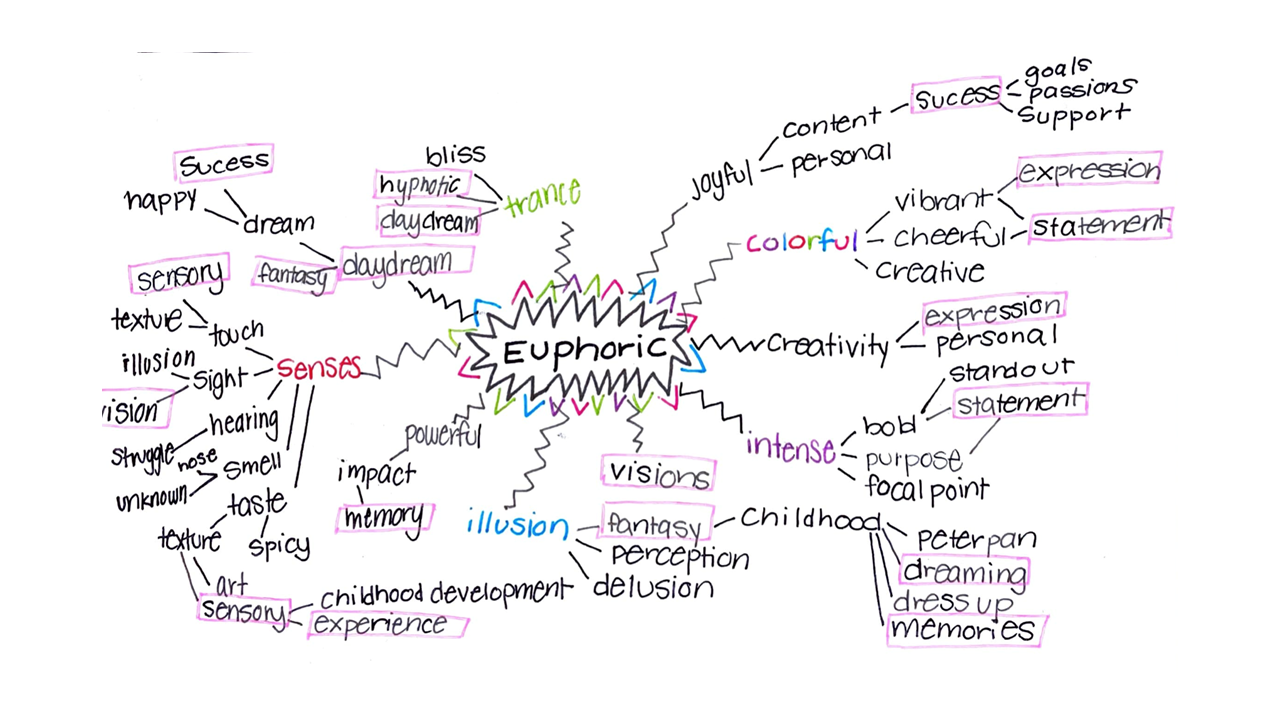 goals
passions
support
Sucess
content
personal
joyful
bliss
hyphotic
daydream
trance
Sucess
happy
dream
daydream
fantasy
expression
vibrant
statement
cheerful
colorful
creative
sensory
texture
touch
illusion
sight
senses
vision
hearing
struggle
nose
smell
unknown
taste
texture
spicy
art
sensory
childhood development
experience
Euphoric
expression
Creativity
personal
standout
statement
bold
intense
purpose
focal point
powerful
impact
memory
visions
illusion
fantasy
perception
delusion
Childhood
peterpan
dreaming
dress up
memories